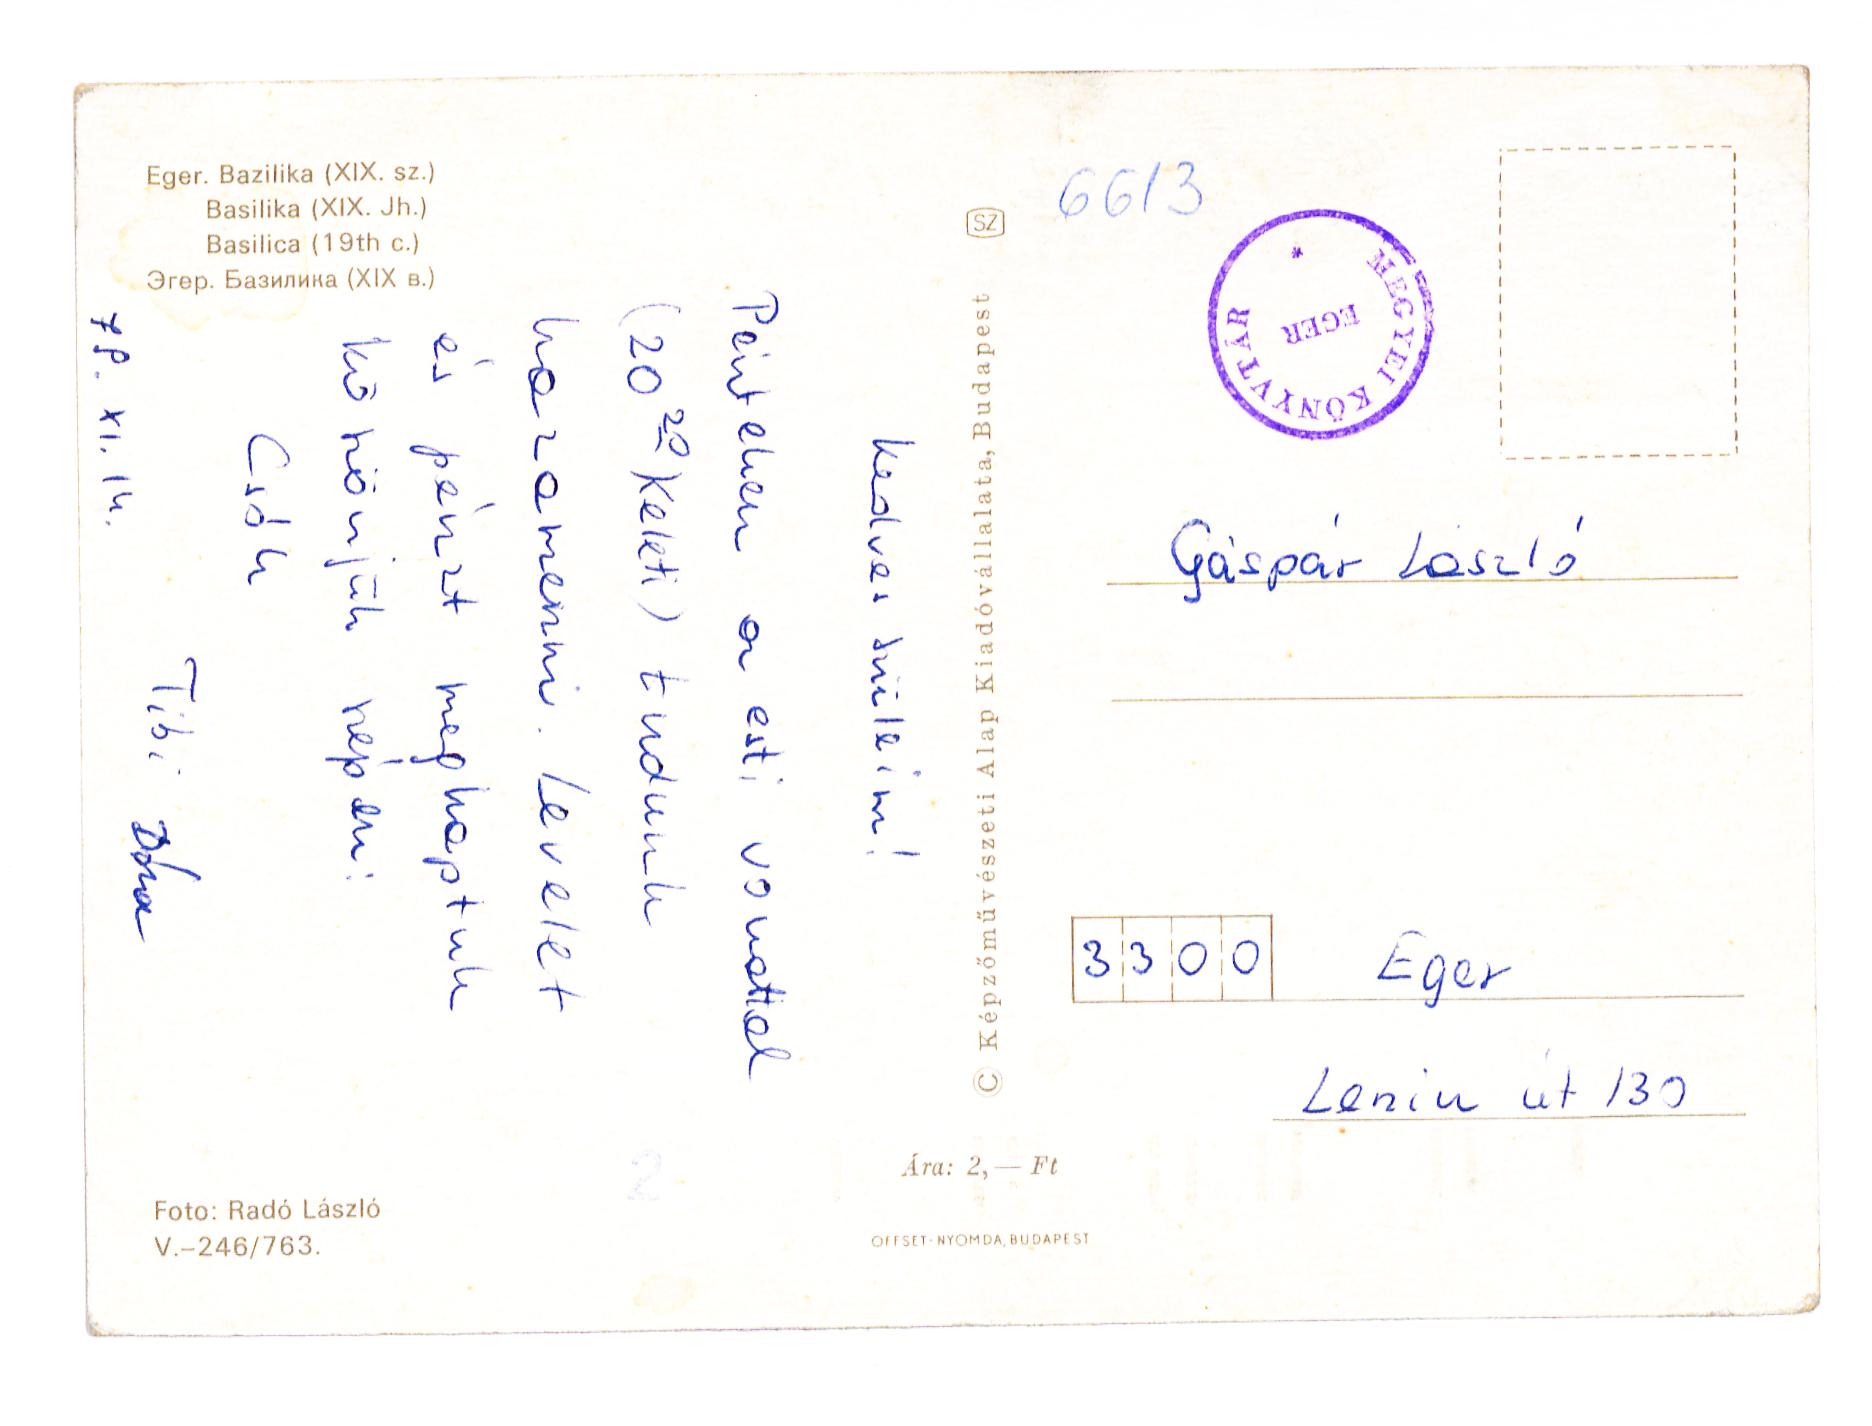 Eger. Bazilika (XIX. sz.)
Basilika (XIX. Jh.)
Basilica (19th c.)
Эгер. Базилика (XIX в.)
Kedves szüleim!
Pénteken az esti vonattal
(20 20 Keleti) tudunk
hazamenni. Levelet
és pénzt megkaptuk
köszönjük szépen!
Csók
Tibi Dóra
78. XI. 14.
Foto: Radó László
V.–246/763.
SZ
© Képzőművészeti Alap Kiadóvállalata, Budapest
Ára: 2,— Ft
OFFSET-NYOMDA, BUDAPEST
6613
MEGYEI KÖNYVTÁR
EGER
*
Gáspár László
3300 Eger
Lenin út 130
2